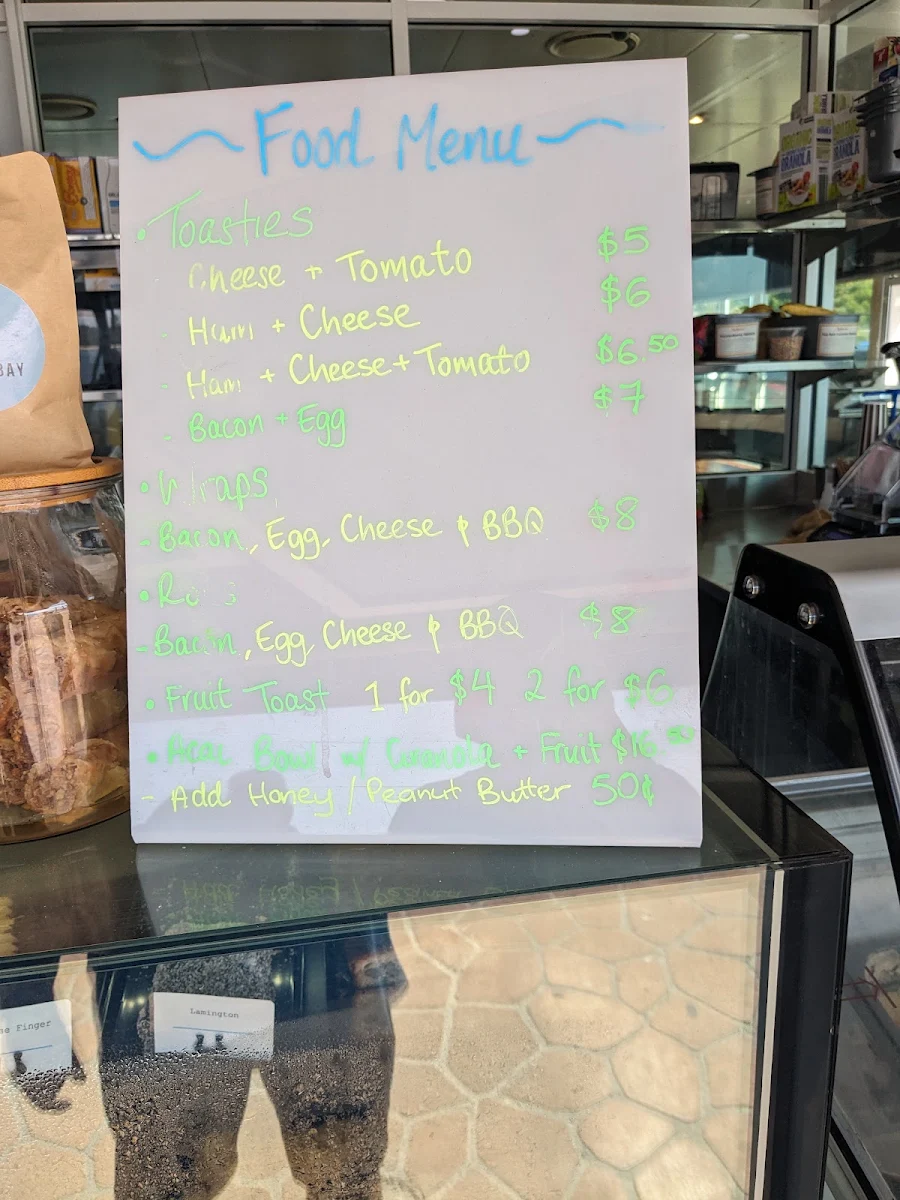 Food Menu
• Toasties
Cheese + Tomato $5
- Ham + Cheese $6
- Ham + Cheese + Tomato $6.50
- Bacon + Egg $7
• Wraps
- Bacon, Egg, Cheese & BBQ $8
• Rolls
- Bacon, Egg, Cheese & BBQ $8
• Fruit Toast 1 for $4 2 for $6
• Acai Bowl w/ Granola + Fruit $16.50
- Add Honey / Peanut Butter 50¢
BAY
GRANOLA
GRANOLA
Finger
Lamington